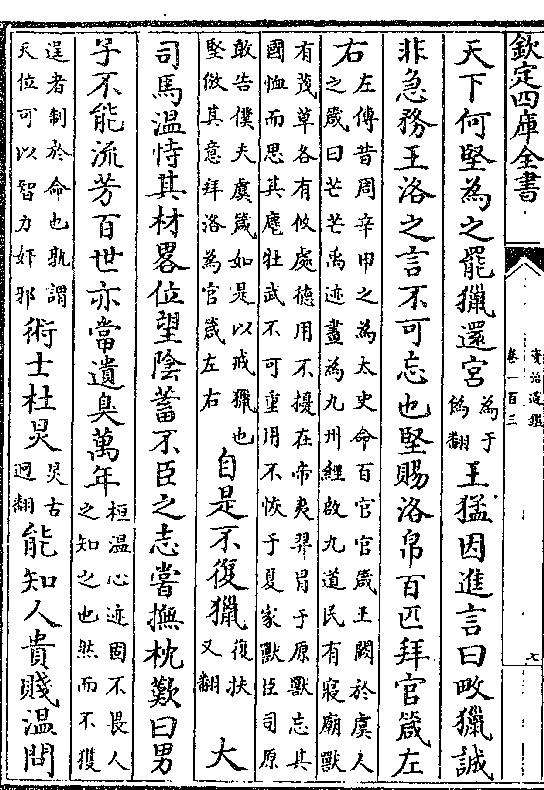 欽定四庫全書
資治通鑑
卷一百三
七
天下何堅為之罷獵還宮為于偽翻王猛因進言曰畋獵誠
非急務王洛之言不可忘也堅賜洛帛百匹拜官箴左
右左傳昔周辛甲之為太史命百官官箴王闕於虞人
之箴曰芒芒禹迹畫為九州經啟九道民有寢廟獸
有茂草各有攸處德用不擾在帝夷羿冒于原獸忘其
國恤而思其麀牡武不可重用不恢于夏家獸臣司原
敢告僕夫虞箴如是以戒獵也
堅倣其意拜洛為官箴左右
自是不復獵復扶又翻大
司馬溫恃其材畧位望陰蓄不臣之志嘗撫枕歎曰男
子不能流芳百世亦當遺臭萬年桓溫心迹固不畏人
之知之也然而不獲
逞者制於命也孰謂
天位可以智力奸邪
術士杜炅炅古迥翻能知人貴賤溫問